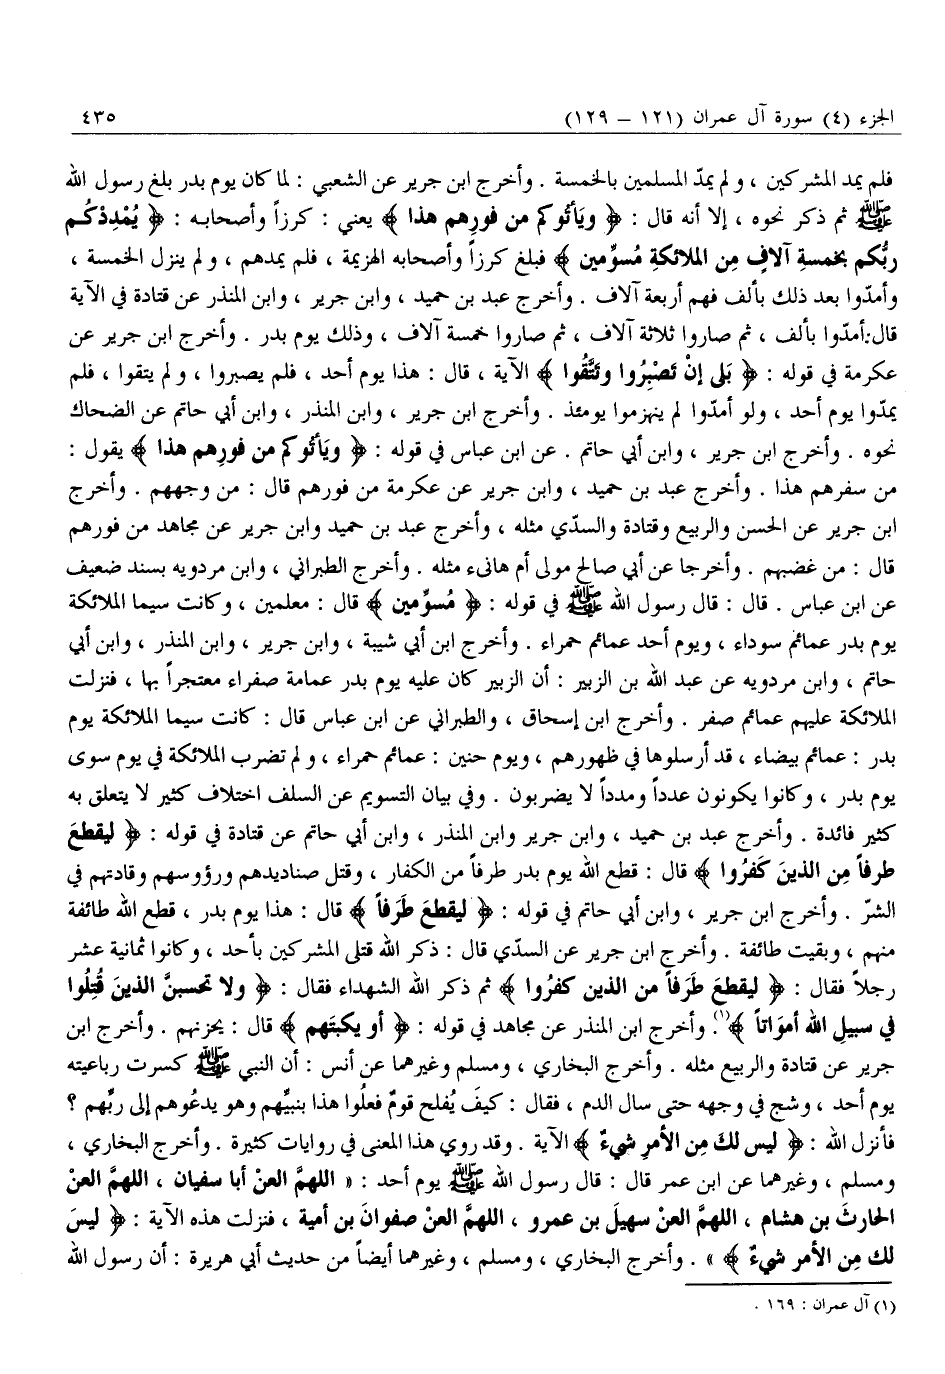 الجزء (٤) سورة آل عمران (١٢١ – ١٢٩) ٤٣٥
فلم يمد المشركين ، ولم يمدّ المسلمين بالخمسة . وأخرج ابن جرير عن الشعبي : لما كان يوم بدر بلغ رسول الله
ﷺ ثم ذكر نحوه ، إلا أنه قال : ﴿ ويَأتُوكم من فورِهم هذا ﴾ يعني : كرزاً وأصحابه : ﴿ يُمْدِدْكُم
ربُّكم بخمسةِ آلافٍ مِن الملائكةِ مُسوِّمين ﴾ فبلغ كرزاً وأصحابه الهزيمة ، فلم يمدهم ، ولم ينزل الخمسة ،
وأمدّوا بعد ذلك بألف فهم أربعة آلاف . وأخرج عبد بن حميد ، وابن جرير ، وابن المنذر عن قتادة في الآية
قال: أمدّوا بألف ، ثم صاروا ثلاثة آلاف ، ثم صاروا خمسة آلاف ، وذلك يوم بدر . وأخرج ابن جرير عن
عكرمة في قوله : ﴿ بَلى إنْ تَصْبِرُوا وتَتَّقُوا ﴾ الآية ، قال : هذا يوم أحد ، فلم يصبروا ، ولم يتقوا ، فلم
يمدّوا يوم أحد ، ولو أمدّوا لم ينهزموا يومئذ . وأخرج ابن جرير ، وابن المنذر ، وابن أبي حاتم عن الضحاك
نحوه . وأخرج ابن جرير ، وابن أبي حاتم . عن ابن عباس في قوله : ﴿ ويَأتُوكم من فورِهم هذا ﴾ يقول :
من سفرهم هذا . وأخرج عبد بن حميد ، وابن جرير عن عكرمة من فورهم قال : من وجههم . وأخرج
ابن جرير عن الحسن والربيع وقتادة والسدّي مثله ، وأخرج عبد بن حميد وابن جرير عن مجاهد من فورهم
قال : من غضبهم . وأخرجا عن أبي صالح مولى أم هانىء مثله . وأخرج الطبراني ، وابن مردويه بسند ضعيف
عن ابن عباس . قال : قال رسول الله ﷺ في قوله : ﴿ مُسوِّمين ﴾ قال : معلمين ، وكانت سيما الملائكة
يوم بدر عمائم سوداء ، ويوم أحد عمائم حمراء . وأخرج ابن أبي شيبة ، وابن جرير ، وابن المنذر ، وابن أبي
حاتم ، وابن مردويه عن عبد الله بن الزبير : أن الزبير كان عليه يوم بدر عمامة صفراء معتجراً بها ، فنزلت
الملائكة عليهم عمائم صفر . وأخرج ابن إسحاق ، والطبراني عن ابن عباس قال : كانت سيما الملائكة يوم
بدر : عمائم بيضاء ، قد أرسلوها في ظهورهم ، ويوم حنين : عمائم حمراء ، ولم تضرب الملائكة في يوم سوى
يوم بدر ، وكانوا يكونون عدداً ومدداً لا يضربون . وفي بيان التسويم عن السلف اختلاف كثير لا يتعلق به
كثير فائدة . وأخرج عبد بن حميد ، وابن جرير وابن المنذر ، وابن أبي حاتم عن قتادة في قوله : ﴿ ليقطعَ
طرفاً مِن الذينَ كَفرُوا ﴾ قال : قطع الله يوم بدر طرفاً من الكفار ، وقتل صناديدهم ورؤوسهم وقادتهم في
الشرّ . وأخرج ابن جرير ، وابن أبي حاتم في قوله : ﴿ ليقطعَ طَرَفاً ﴾ قال : هذا يوم بدر ، قطع الله طائفة
منهم ، وبقيت طائفة . وأخرج ابن جرير عن السدّي قال : ذكر الله قتلى المشركين بأحد ، وكانوا ثمانية عشر
رجلاً فقال : ﴿ ليقطعَ طَرَفاً من الذين كفرُوا ﴾ ثم ذكر الله الشهداء فقال : ﴿ ولا تحسبنَّ الذينَ قُتِلُوا
في سبيلِ الله أموَاتاً ﴾(١). وأخرج ابن المنذر عن مجاهد في قوله : ﴿ أو يكبتَهم ﴾ قال : يخزنهم . وأخرج ابن
جرير عن قتادة والربيع مثله . وأخرج البخاري ، ومسلم وغيرهما عن أنس : أن النبي ﷺ كسرت رباعيته
يوم أحد ، وشج في وجهه حتى سال الدم ، فقال : كيفَ يُفلح قومٌ فعلُوا هذا بنبيِّهم وهو يدعُوهم إلى ربِّهم ؟
فأنزل الله : ﴿ ليس لكَ مِن الأمرِ شيءٌ ﴾ الآية . وقد روي هذا المعنى في روايات كثيرة . وأخرج البخاري ،
ومسلم ، وغيرهما عن ابن عمر قال : قال رسول الله ﷺ يوم أحد : « اللهمَّ العنْ أبا سفيان ، اللهمَّ العنْ
الحارثَ بن هشام ، اللهمَّ العنْ سهيلَ بن عمرو ، اللهمَّ العنْ صفوانَ بن أمية ، فنزلت هذه الآية : ﴿ ليسَ
لك مِن الأمر شيءٌ ﴾ » . وأخرج البخاري ، ومسلم ، وغيرهما أيضاً من حديث أبي هريرة : أن رسول الله
(١) آل عمران : ١٦٩ .